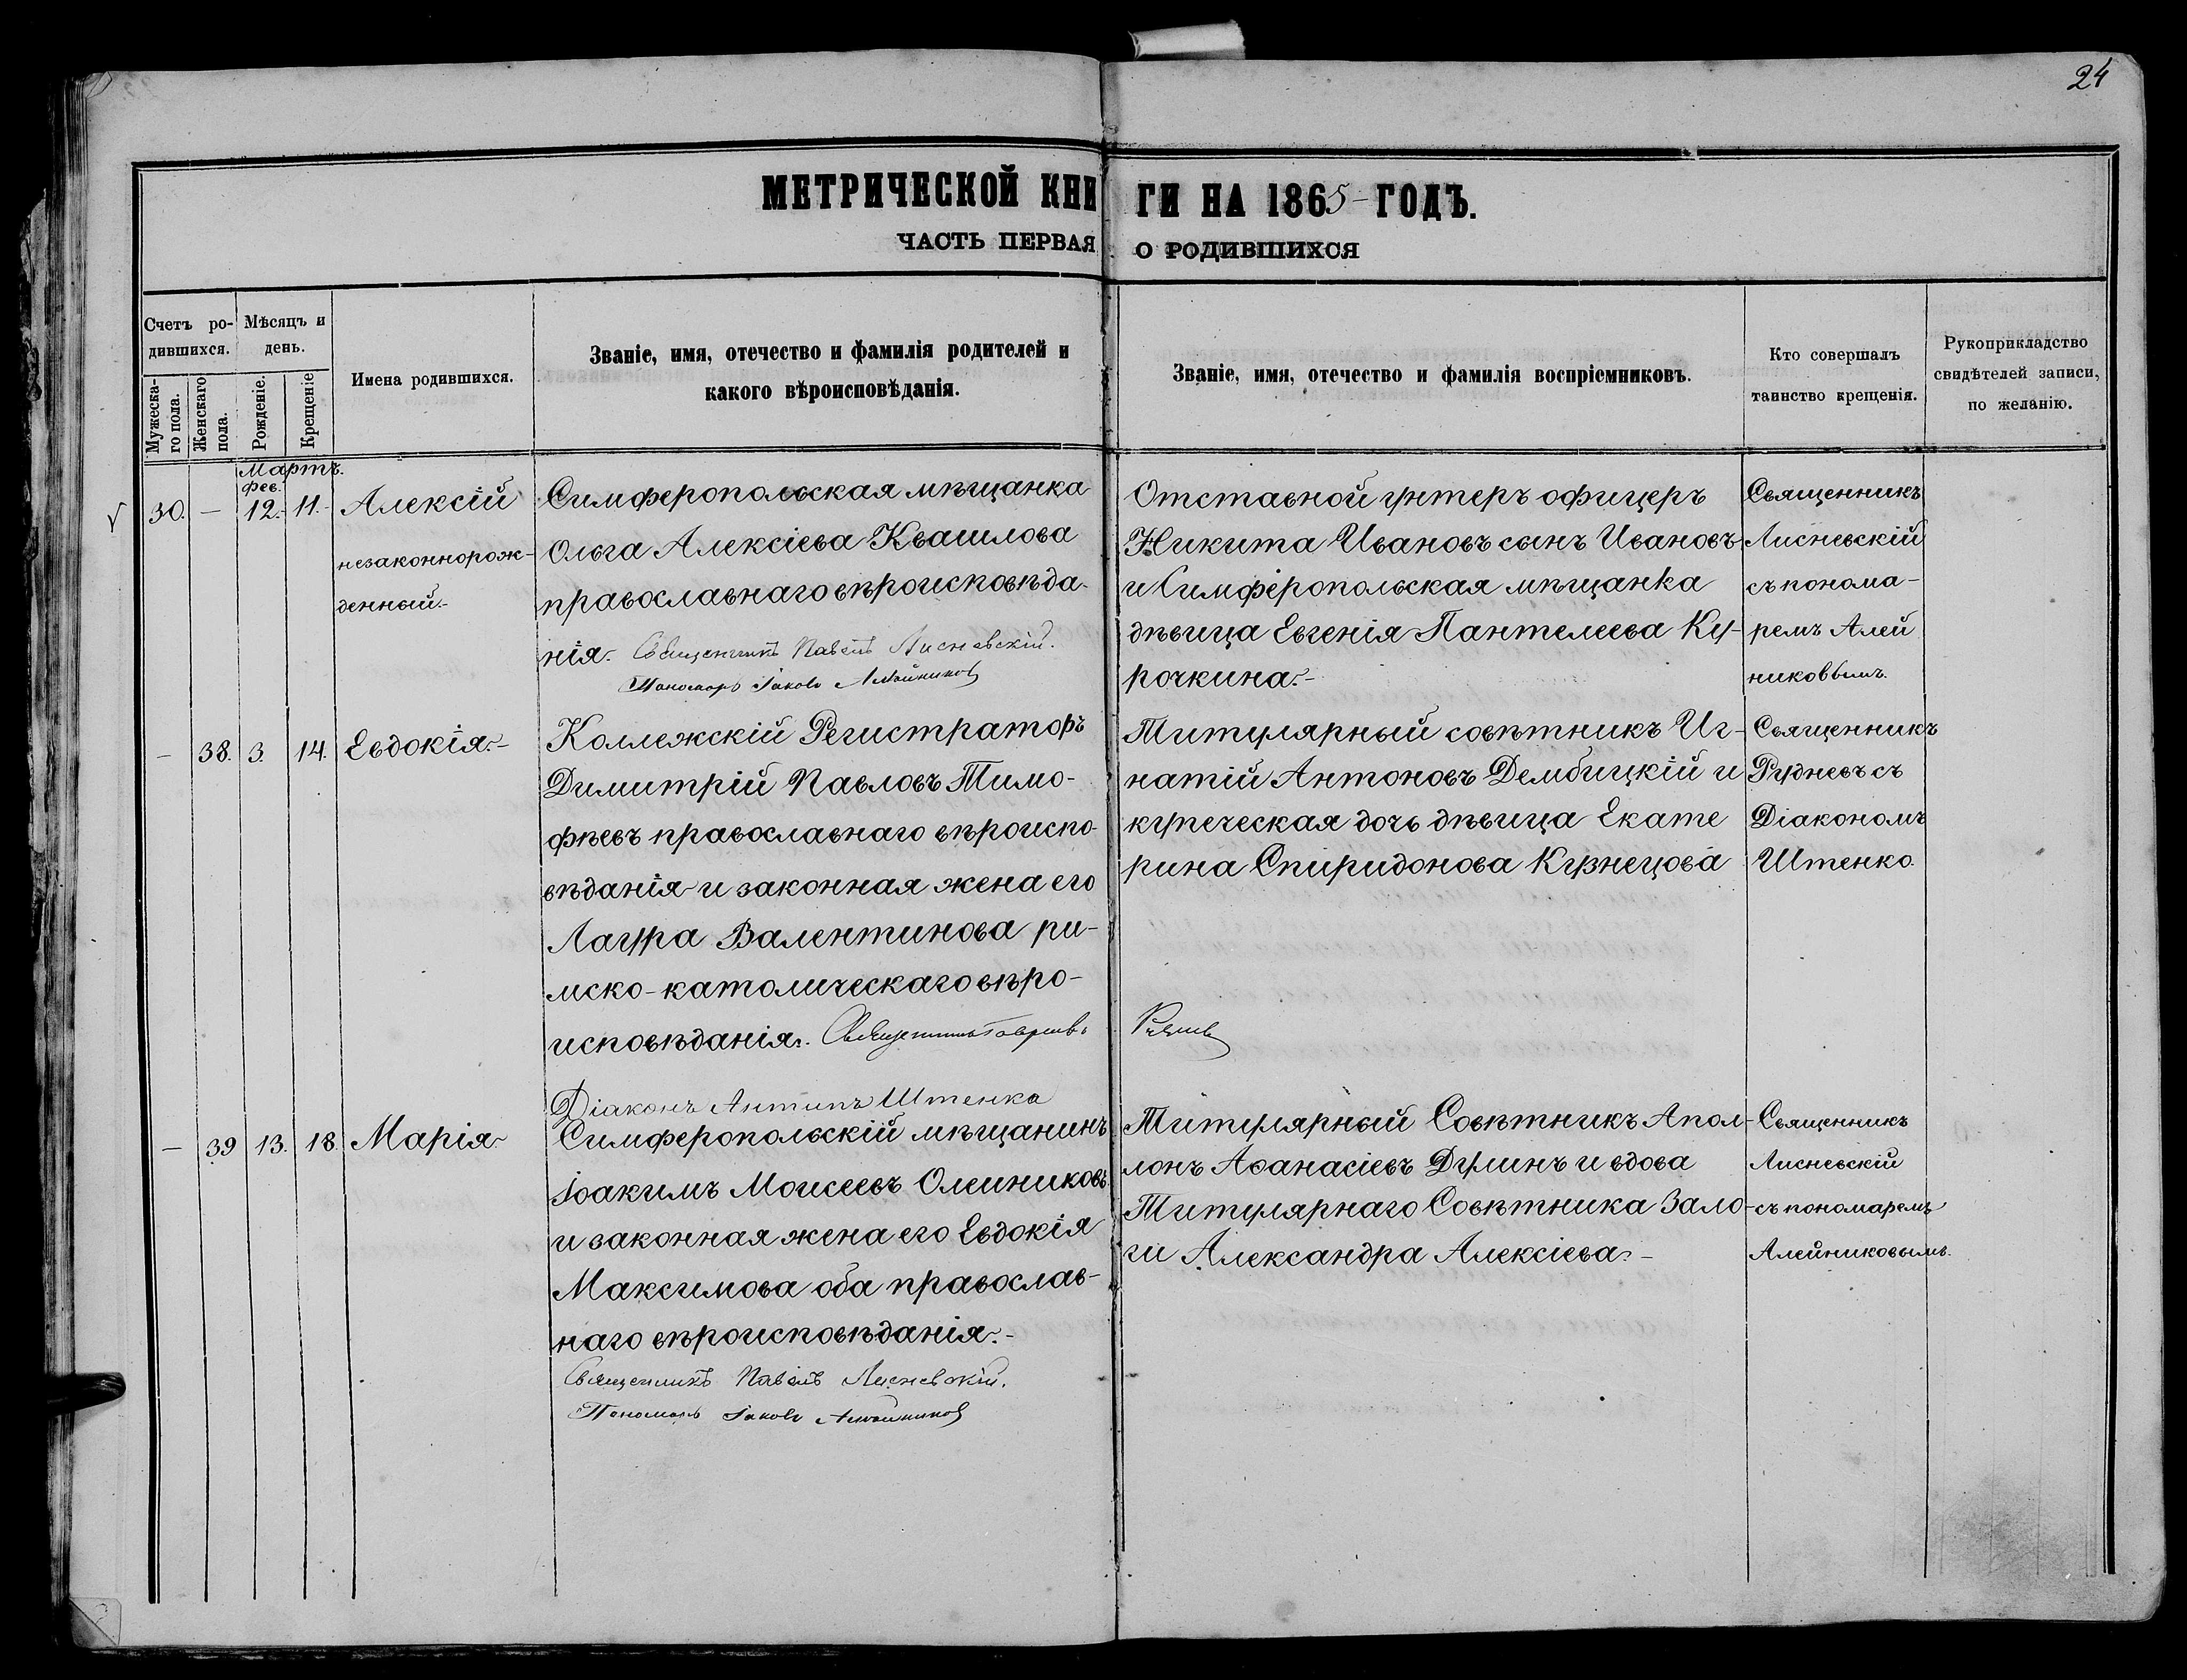 24
МЕТРИЧЕСКОЙ КНИГИ НА 1865 ГОДЪ.
ЧАСТЬ ПЕРВАЯ О РОДИВШИХСЯ
Счетъ ро-
дившихся.
Мужеска-
го пола.
Женскаго
пола.
Мѣсяцъ и
день.
Рожденіе.
Крещеніе
Имена родившихся.
Званіе, имя, отечество и фамилія родителей и
какого вѣроисповѣданія.
Званіе, имя, отечество и фамилія воспріемниковъ.
Кто совершалъ
таинство крещенія.
Рукоприкладство
свидѣтелей записи,
по желанію.
Мартъ.
30. — фев. 12. 11.
Алексій
незаконнорож-
денный.-
Симферопольская мѣщанка
Ольга Алексіева Квашилова
православнаго вѣроисповѣда-
нія. Священникъ Павелъ Лисневскій.
Пономарь Іаковъ Алейников
Отставной унтеръ офицеръ
Никита Ивановъ сынъ Ивановъ
и Симферопольская мѣщанка
дѣвица Евгенія Пантелеева Ку-
рочкина.-
Священникъ
Лисневскій
съ понома-
ремъ Алей
никовымъ.
— 38. 3. 14.
Евдокія.-
Коллежскій Регистраторъ
Димитрій Павловъ Тимо-
фѣевъ православнаго вѣроиспо-
вѣданія и законная жена его
Лаура Валентинова ри-
мско-католическаго вѣро-
исповѣданія. Священникъ Гавріилъ Руднев
Діаконъ Антипъ Штенко
Титулярный совѣтникъ Иг-
натій Антоновъ Дембицкій и
купеческая дочь дѣвица Екате
рина Спиридонова Кузнецова
Священникъ
Рудневъ съ
Діакономъ
Штенко
— 39 13. 18.
Марія
Симферопольскій мѣщанинъ
Іоакимъ Моисеевъ Олейниковъ
и законная жена его Евдокія
Максимова оба православ-
наго вѣроисповѣданія.-
Священникъ Павелъ Лисневскій.
Пономарь Іаковъ Алейников
Титулярный Совѣтникъ Апол-
лонъ Аѳанасіевъ Дулинъ и вдова
Титулярнаго Совѣтника Зало-
ги Александра Алексіева.-
Священникъ
Лисневскій
съ пономаремъ
Алейниковымъ.